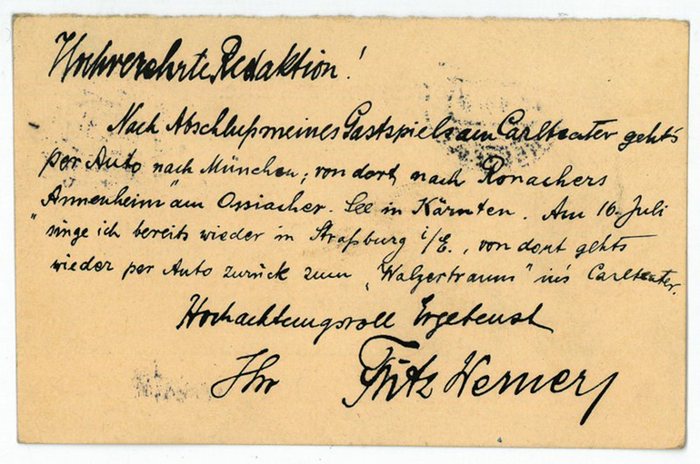 Hochverehrte Redaktion!
Nach Abschluß meines Gastspiels am Carlteater geht's
per Auto nach München; von dort nach Ronachers
"Annenheim" am Ossiacher. See in Kärnten. Am 16. Juli
singe ich bereits wieder in Straßburg i/E., von dort gehts
wieder per Auto zurück zum „Walzertraum" in's Carlteater.
Hochachtungsvoll Ergebenst
Ihr Fritz Werner